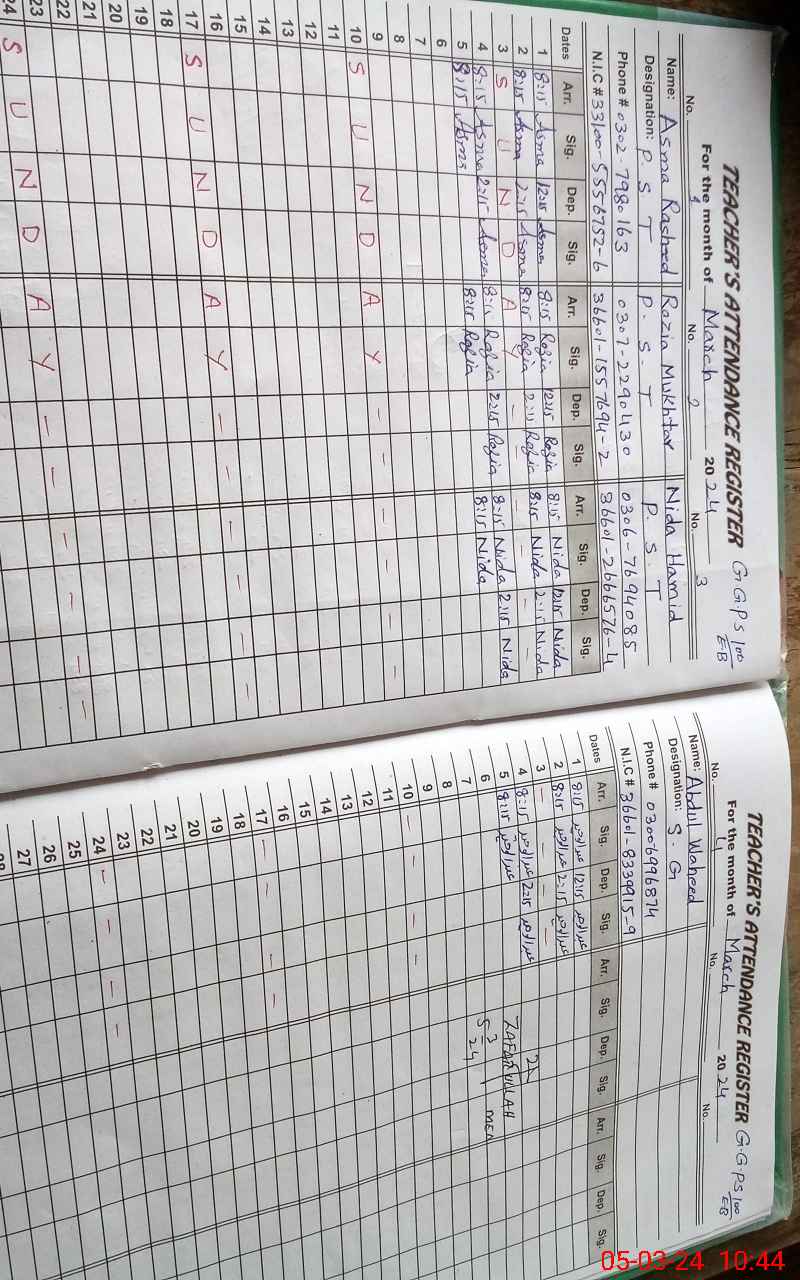 TEACHER'S ATTENDANCE REGISTER G G P S 100/EB
For the month of March 2024
No. 1 No. 2 No. 3
Name: Asma Rasheed Razia Mukhtar Nida Hamid
Designation: P. S. T P. S. T P. S. T
Phone # 0302-7980163 0307-2290430 0306-7694085
N.I.C # 33100-5556752-6 36601-1557694-2 36601-2666576-4
Dates Arr. Sig. Dep. Sig. Arr. Sig. Dep. Sig. Arr. Sig. Dep. Sig.
1 8:15 Asma 12:15 Asma 8:15 Razia 12:15 Razia 8:15 Nida 12:15 Nida
2 8:15 Asma 2:15 Asma 8:15 Razia 2:15 Razia 8:15 Nida 2:15 Nida
3 S U N D A Y - - - - - -
4 8:15 Asma 2:15 Asma 8:15 Razia 2:15 Razia 8:15 Nida 2:15 Nida
5 8:15 Asma 8:15 Razia 8:15 Nida
6
7
8
9
10 S U N D A Y - - - -
11
12
13
14
15
16
17 S U N D A Y - - - - -
18
19
20
21
22
23
24 S U N D A Y - - - - - -
TEACHER'S ATTENDANCE REGISTER G.G PS 100/EB
For the month of March 2024
No. 4 No. No.
Name: Abdul Waheed
Designation: S. G
Phone # 03006996874
N.I.C # 36601-8339915-9
Dates Arr. Sig. Dep. Sig. Arr. Sig. Dep. Sig. Arr. Sig. Dep. Sig.
1 8:15 عبدالوحید 12:15 عبدالوحید
2 8:15 عبدالوحید 2:15 عبدالوحید
3 - - - -
4 8:15 عبدالوحید 2:15 عبدالوحید
5 8:15 عبدالوحید
ZAFARULLAH
MEA
5 3 24
6
7
8
9
10 - - - -
11
12
13
14
15
16
17 - - - -
18
19
20
21
22
23
24 - - - -
25
26
27
28
05-03-24 10:44